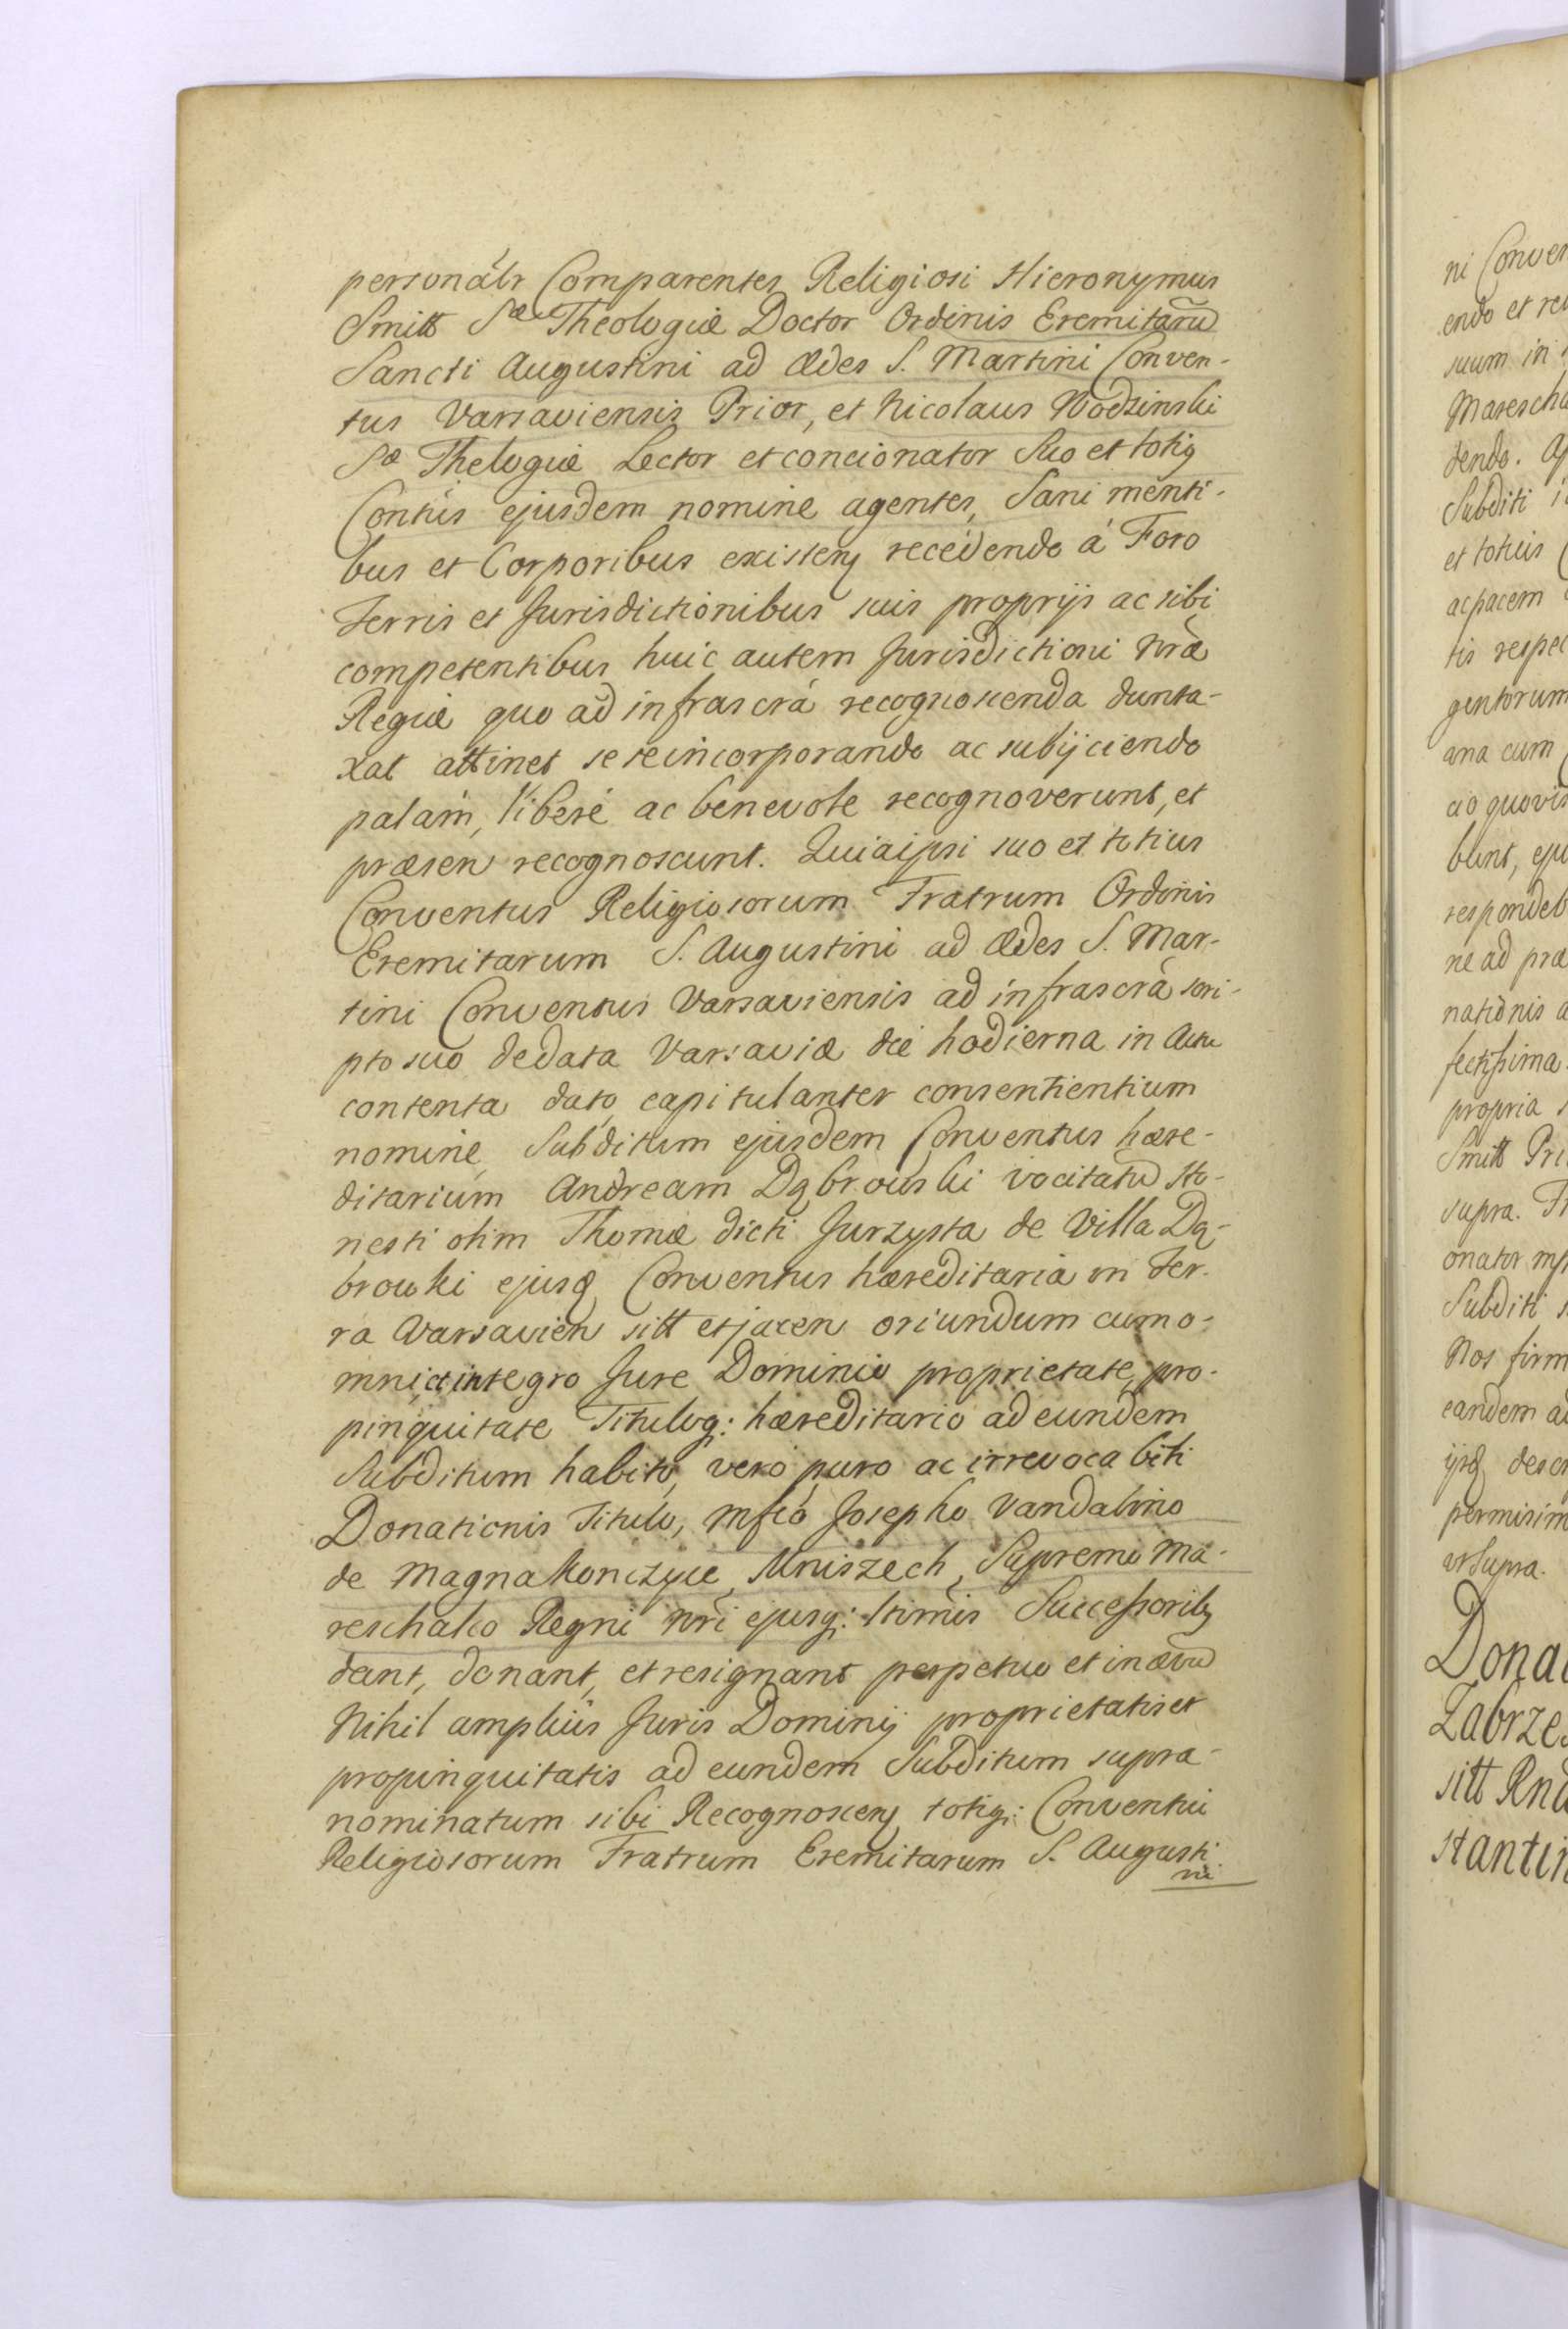 personalr Comparentes Religiosi Hieronymus
Smitt Sæ Theologiæ Doctor Ordinis Eremitarũ
Sancti Augustini ad Ædes S. Martini Conven-
tus Varsaviensis Prior, et Nicolaus Wodzinski
Sæ Thelogiæ Lector et concionator Suo et totiq
Contûs ejusdem nomine agentes, Sani menti-
bus et Corporibus existenq recedendo á Foro
Terris et Jurisdictionibus suis proprijs ac sibi
competentibus huic autem Jurisdictioni nræ
Regiæ quo ad infrascrá recognoscenda dunta-
xat attinet sese incorporando ac subijciendo
palam, liberé ac benevole recognoverunt, et
præsen recognoscunt. Quia ipsi suo et totius
Conventus Religiosorum Fratrum Ordinis
Eremitarum S. Augustini ad Ædes S. Mar-
tini Conventus Varsaviensis ad infrascrá scri-
pto suo de data Varsaviæ die hodierna in Actu
contenta dato capitulanter consentientium
nomine Subditum ejusdem Conventus hære-
ditarium Andream Dąbrowski vocitatũ Ho-
nesti olim Thomæ dicti Jurzysta de Villa Dą-
browki ejusq Conventus hæreditaria in Ter-
ra Varsavien sitt et jacen oriundum cum o-
mni et integro Jure Dominio proprietate, pro-
pinquitate Tituloq: hæreditario ad eundem
Subditum habito, vero puro ac irrevocabili
Donationis Titulo, Mfico Josepho Vandalino
de Magna Konczyce Mniszech, Supremo Ma-
reschalco Regni nri ejusq: ltimis Successoribq
dant, donant, et resignant perpetuo et in ævũ
Nihil ampliús Juris Dominij proprietatis et
propinquitatis ad eundem Subditum supra-
nominatum sibi Recognoscenq totiq: Conventui
Religiosorum Fratrum Eremitarum S. Augusti
ni
ni Conven
endo et re
suum in
Marescha
dendo.
Subditi
et totius
ac pacem
tis respec
gentorum
ana cum
ao quovis
bunt, eju
respondeb
ne ad præ
nationis a
fectissima
propria
Smitt Pri
supra.
onator
Subditi
Nos firm
eandem a
ijsq descr
permisim
ut supra.
Dona
Zabrze
sitt Rnd
stantin